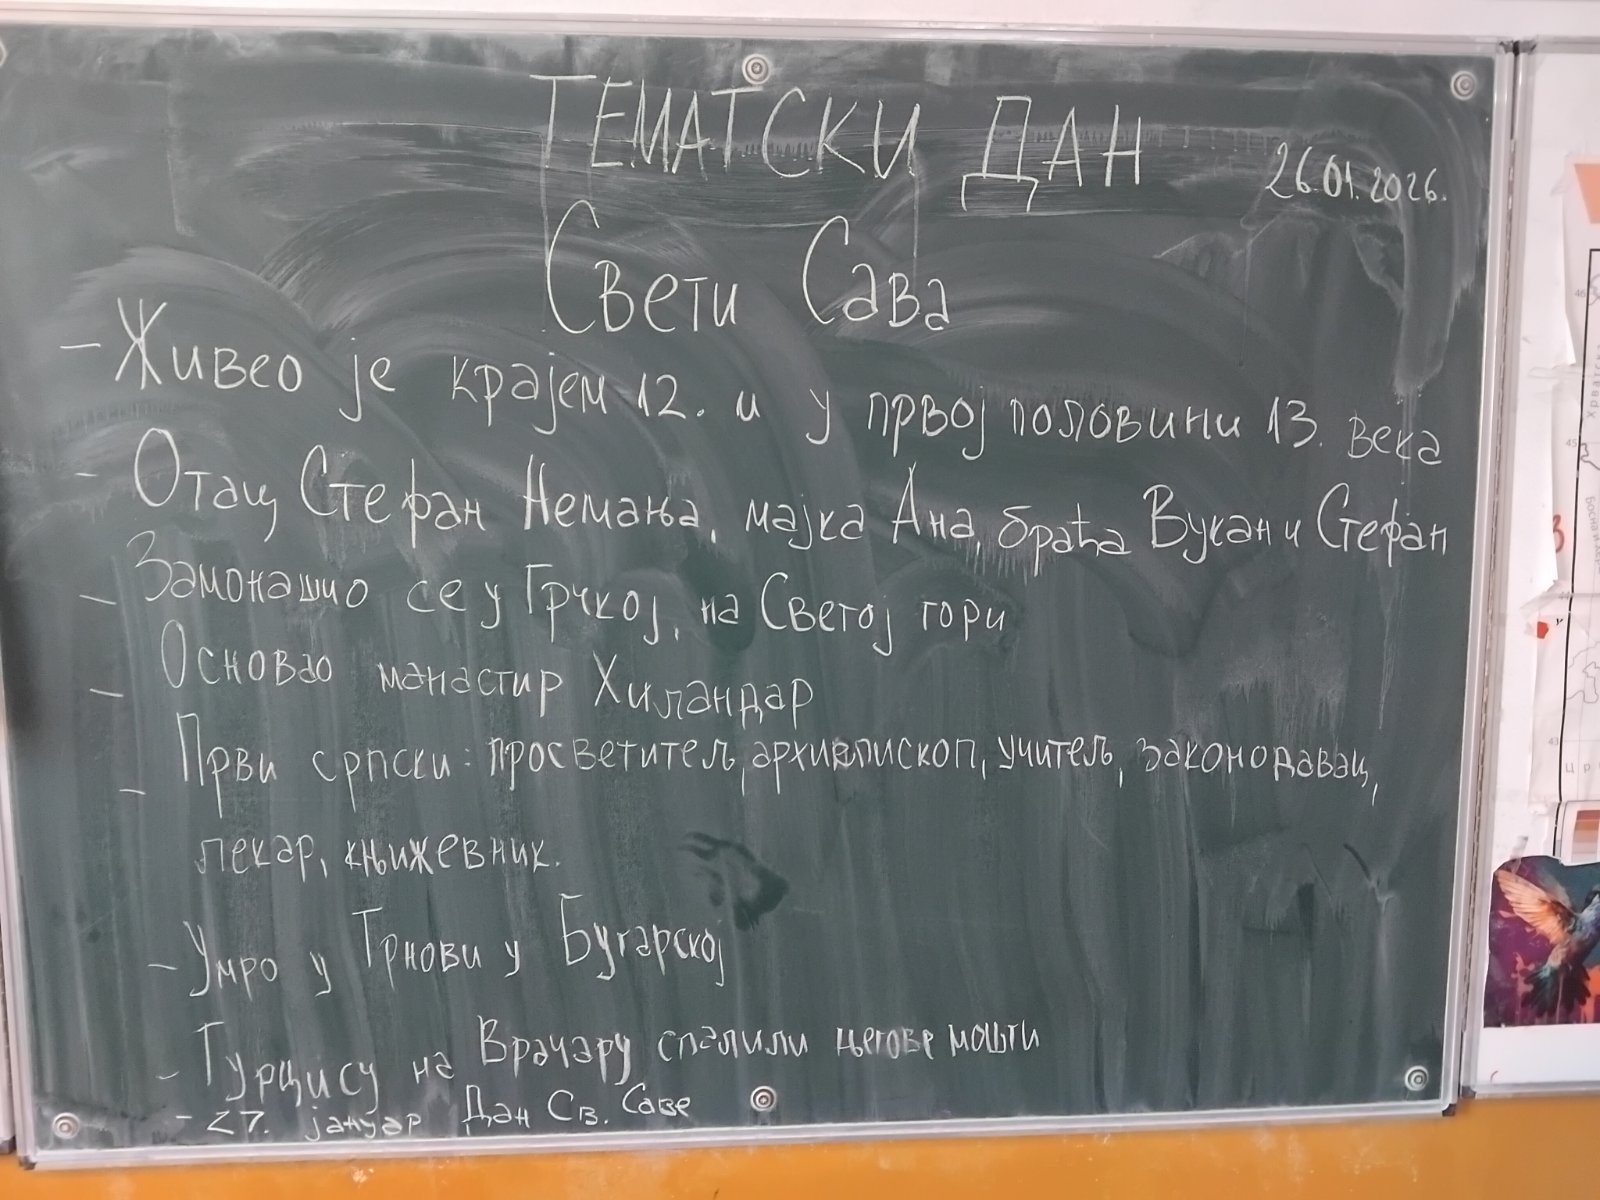 ТЕМАТСКИ ДАН
26.01.2026.
Свети Сава
- Живео је крајем 12. и у првој половини 13. века
- Отац Стефан Немања, мајка Ана, браћа Вукан и Стефан
- Замонашио се у Грчкој, на Светој гори
- Основао манастир Хиландар
- Први српски: просветитељ, архиепископ, учитељ, законодавац,
лекар, књижевник.
- Умро у Трнови у Бугарској
- Турци су на Врачару спалили његове мошти
- 27. јануар Дан Св. Саве